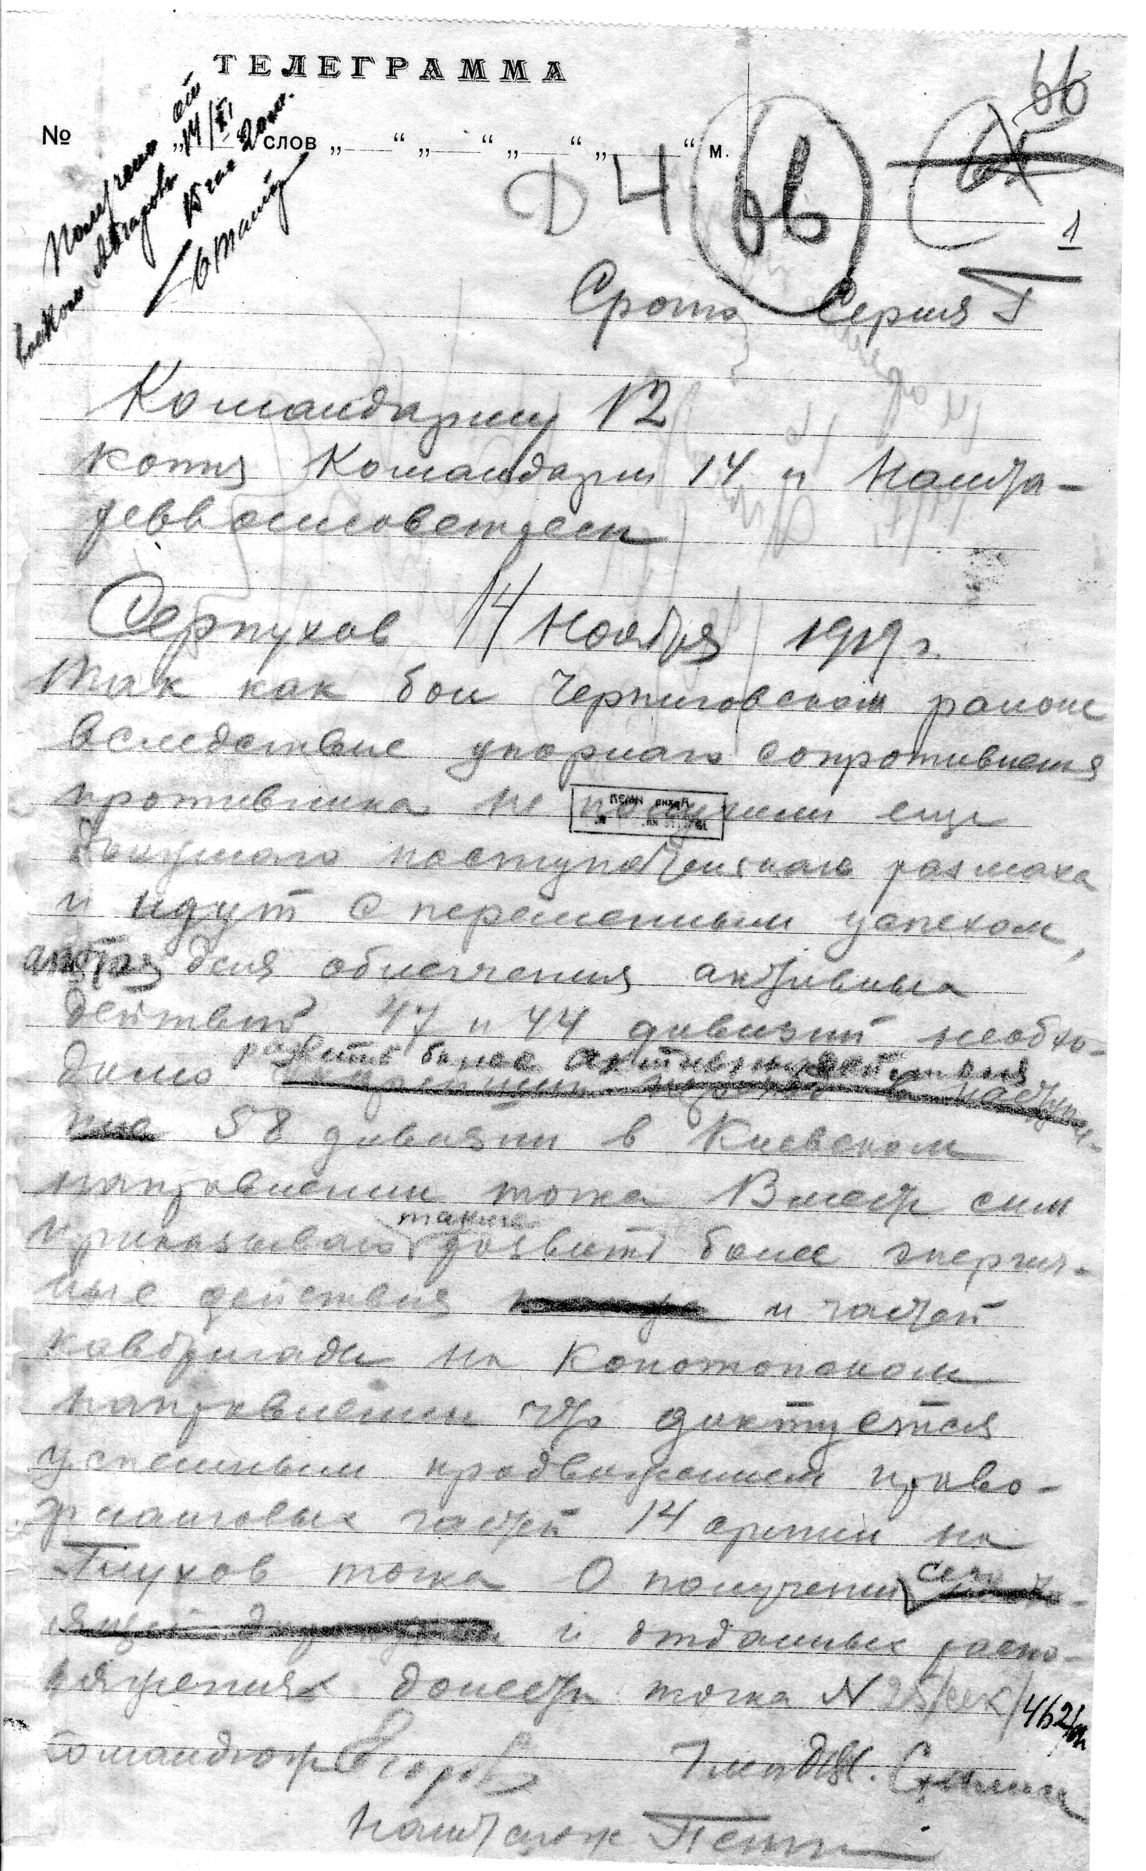 ТЕЛЕГРАММА
№ слов „ “ „ “ „ “ „ “ м.
14/XI
15 час 20 мин.
66
Д 4 66
65
1
Срочно Серия Г
Командарму 12
копия Командарм 14 и Нашта-
реввоенсоветресп
Серпухов 14 Ноября 1919 г.
Так как бои Черниговском районе
вследствие упорного сопротивления
противника не получили еще
должного поступательного размаха
и идут с переменным успехом,
для облегчения активных
действий 47 и 44 дивизий необхо-
димо развить более активные действия
58 дивизии в Киевском
направлении точка Вместе сим
приказываю также развить более энергич-
ные действия и частей
кавбригады на Конотопском
направлении что диктуется
успешным продвижением право-
фланговых частей 14 армии на
Глухов точка О получении сего
и отданных распо-
ряжениях донести точка № 25/сек/462/оп
Командюж Егоров Член РВС. Сталин
Наштаюж Петин